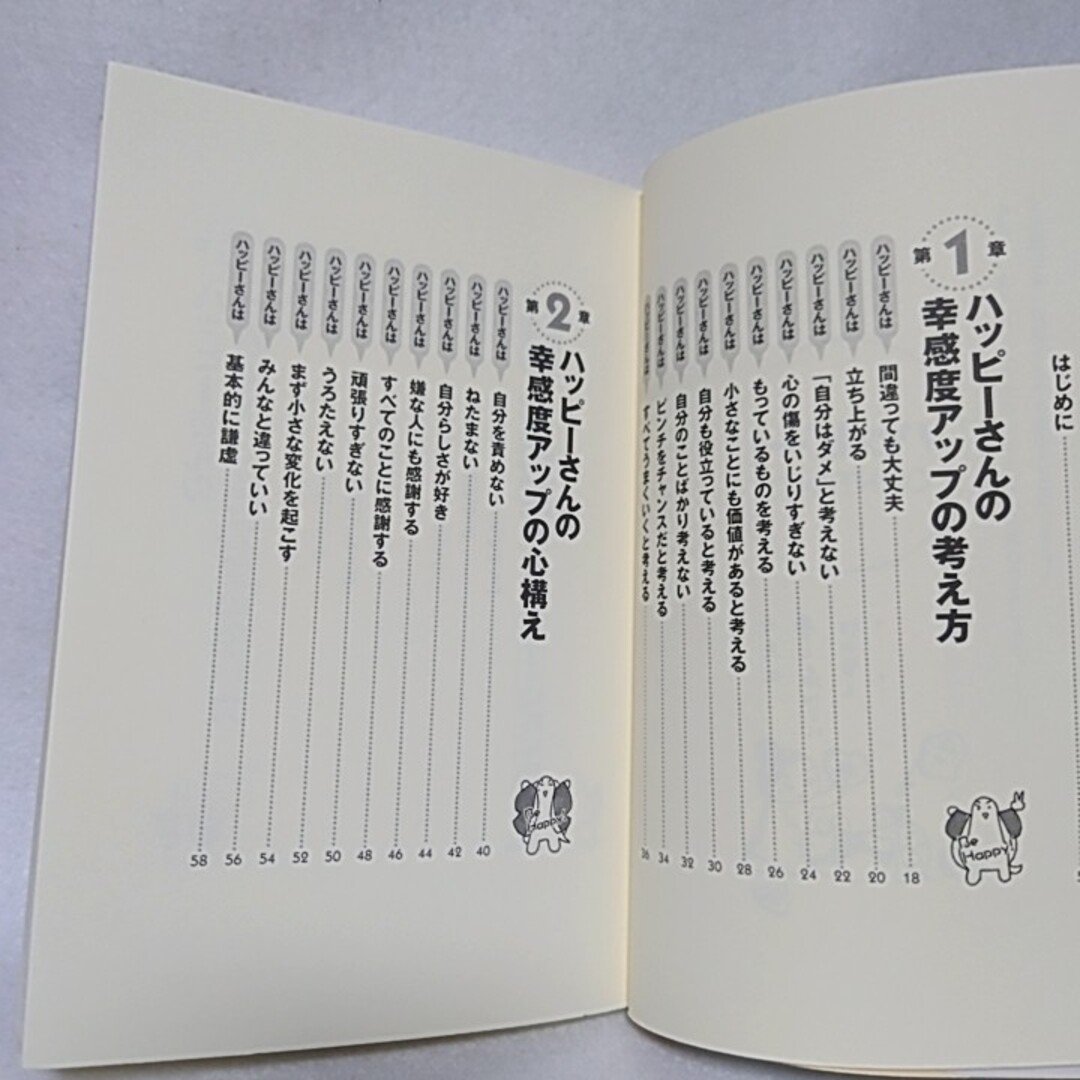 はじめに
第1章
ハッピーさんの
幸感度アップの考え方
Be Happy
ハッピーさんは 間違っても大丈夫 18
ハッピーさんは 立ち上がる 20
ハッピーさんは 「自分はダメ」と考えない 22
ハッピーさんは 心の傷をいじりすぎない 24
ハッピーさんは もっているものを考える 26
ハッピーさんは 小さなことにも価値があると考える 28
ハッピーさんは 自分も役立っていると考える 30
ハッピーさんは 自分のことばかり考えない 32
ハッピーさんは ピンチをチャンスだと考える 34
ハッピーさんは すべてうまくいくと考える 36
第2章
ハッピーさんの
幸感度アップの心構え
Be Happy
ハッピーさんは 自分を責めない 40
ハッピーさんは ねたまない 42
ハッピーさんは 自分らしさが好き 44
ハッピーさんは 嫌な人にも感謝する 46
ハッピーさんは すべてのことに感謝する 48
ハッピーさんは 頑張りすぎない 50
ハッピーさんは うろたえない 52
ハッピーさんは まず小さな変化を起こす 54
ハッピーさんは みんなと違っていい 56
ハッピーさんは 基本的に謙虚 58